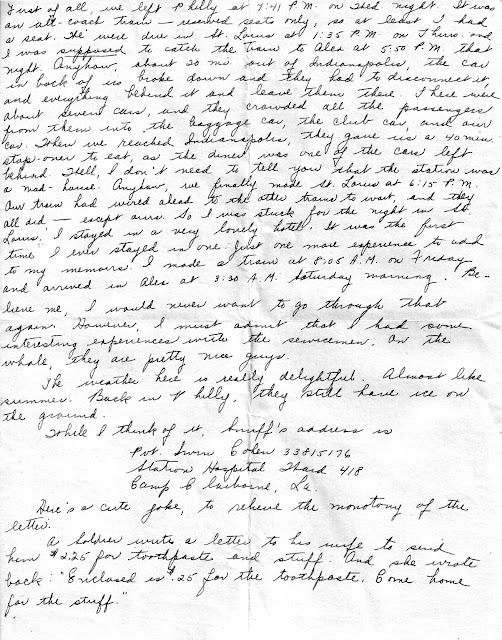 First of all, we left Philly at 7:41 P.M. on Wed. night. It was
an all-coach train – reserved seats only, so at least I had
a seat. We were due in St. Louis at 1:35 P.M. on Thurs. and
I was supposed to catch the train to Alex at 5:50 P.M. that
night. Anyhow, about 20 mi. out of Indianapolis, the car
in back of us broke down and they had to disconnect it,
and everything behind it and leave them there. There were
about seven cars, and they crowded all the passengers
from them into the baggage car, the club car and our
car. When we reached Indianapolis, they gave us a 40 min.
stop-over to eat, as the diner was one of the cars left
behind. Well, I don't need to tell you that the station was
a mad-house. Anyhow, we finally made St. Louis at 6:15 P.M.
Our train had wired ahead to the other trains to wait, and they
all did – except ours. So I was stuck for the night in St.
Louis. I stayed in a very lovely hotel. It was the first
time I ever stayed in one. Just one more experience to add
to my memoirs. I made a train at 8:05 A.M. on Friday
and arrived in Alex at 3:30 A.M. Saturday morning. Be-
lieve me, I would never want to go through that
again. However, I must admit that I had some
interesting experiences with the servicemen. On the
whole, they are pretty nice guys.
The weather here is really delightful. Almost like
summer. Back in Philly, they still have ice on
the ground.
While I think of it, Snuff's address is
Pvt. Irwin Cohen 33815176
Station Hospital Ward 418
Camp Claiborne, La.
Here's a cute joke, to relieve the monotony of the
letter.
A soldier writes a letter to his wife to send
him $2.25 for toothpaste and stuff. And she wrote
back: "Enclosed is $.25 for the toothpaste. Come home
for the stuff."